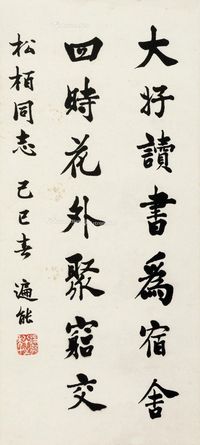 大好讀書爲宿舍
四時花外聚窮交
松柏同志 己巳春 遍能